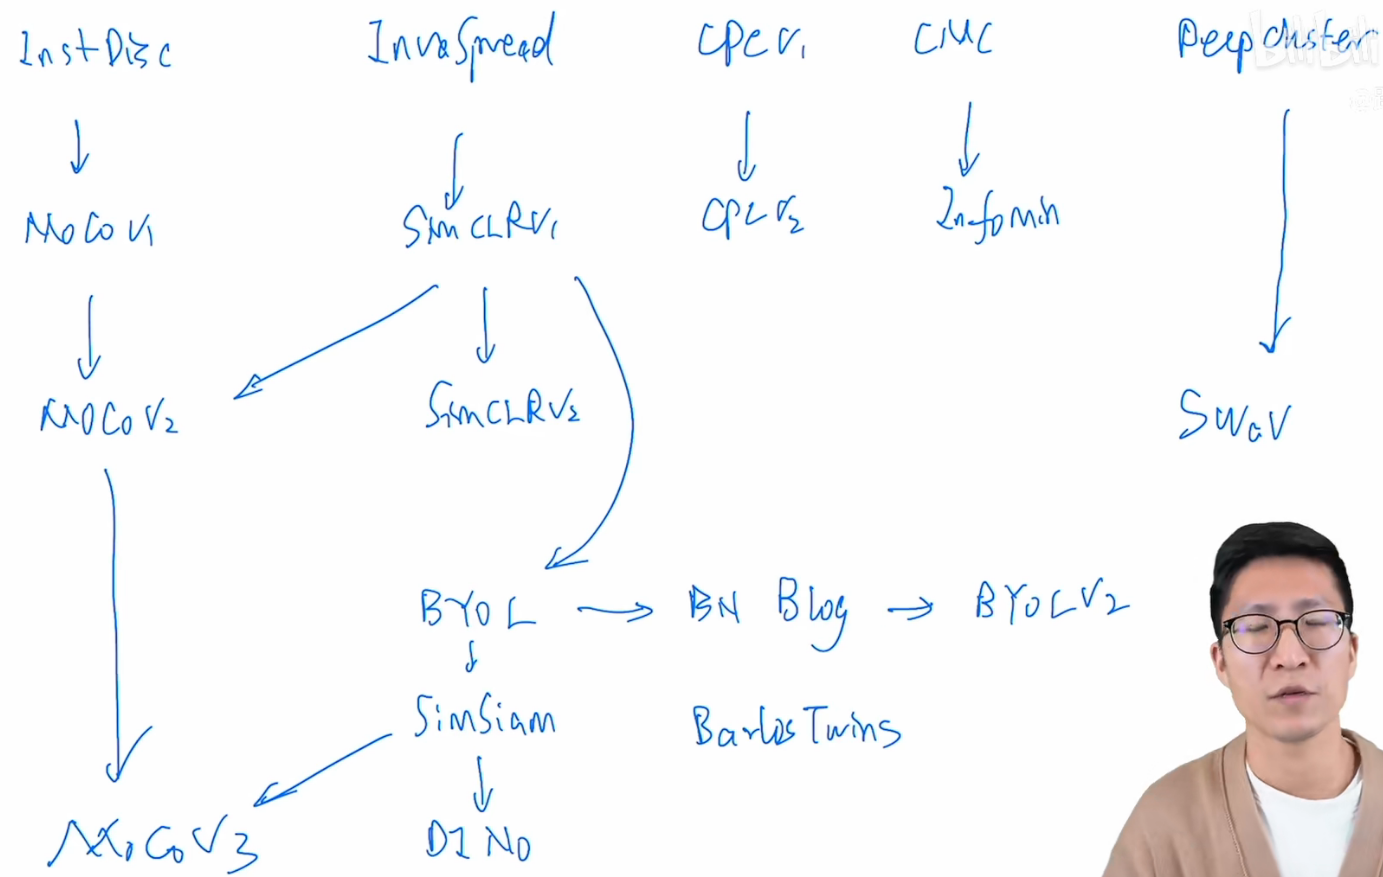 InstDisc InvaSpread CPC V1 CMC DeepCluster
bilibili
MoCo V1 SimCLR V1 CPC V2 Infomin
MoCo V2 SimCLR V2 SWaV
BYOL BN Blog BYOL V2
SimSiam Barlos Twins
MoCo V3 DINO